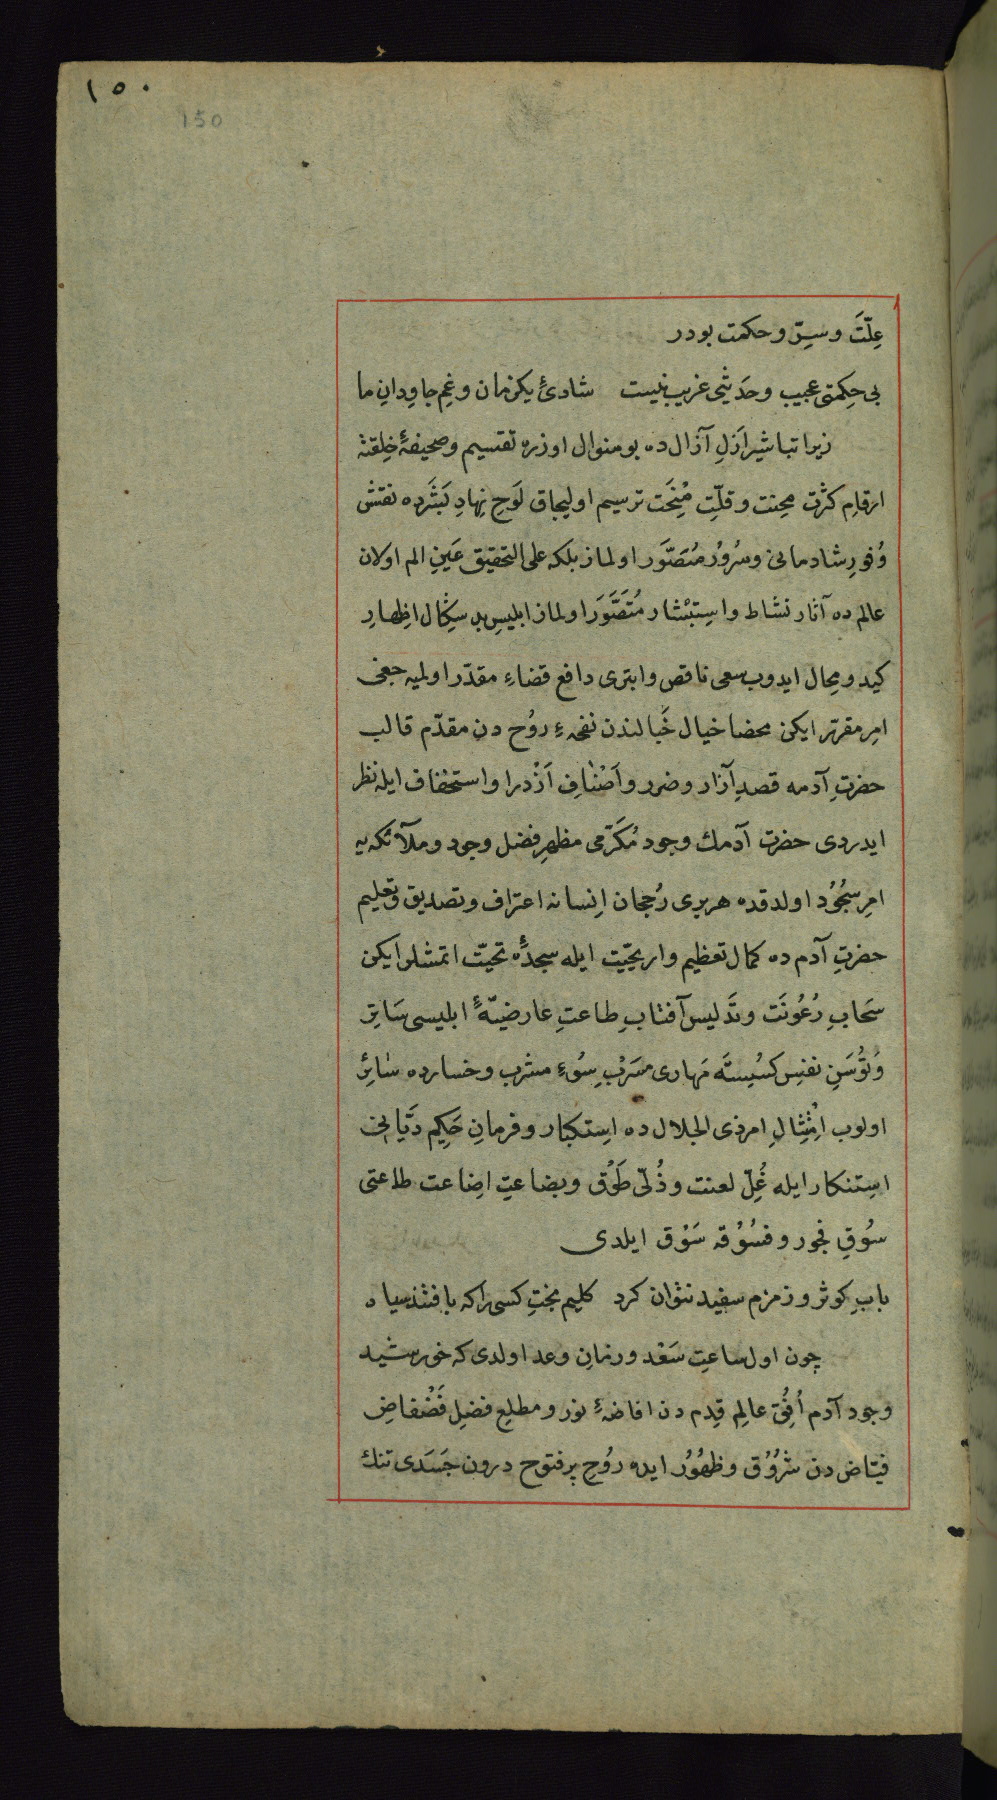 ١٥٠
150
عِلّتَ وسِرّ و حكمت بودر
بی حِكمتی عجیب و حَدیثی غریب نیست شادیٔ یكزمان و غمِ جاوِدانِ ما
زیرا تباشیرِ اَزلِ آزال ده بو منوال اوزره تقسیم و صحیفهٔ خِلقته
ارقامِ كثرت مِحنت و قلّتِ مُِنحَت ترسیم اولیجاق لَوحِ نِهادِ بَشَرده نقش
وُفورِ شادمانی و سُرُورُ مُتَصَوَّر اولماز بلكه علی التحقیق عَینِ الم اولان
عالم ده آثار نشاط و استِبْشار مُتَصَوَّرَ اولماز ابلیسِ بد سِگال اِظهارِ
كید و مِحال ایدوب سعی ناقص و ابتری دافع قضاءِ مقدّر اولمیه جغی
امرِ مقرّر ایكن محضا خیال خَبالندن نفحهءِ روُح دن مقدّم قالب
حضرتِ آدمه قصدِ آزار و ضرر و اَصْنافِ اَزْدرا و استخفاف ایله نظر
ایدردی حضرت آدمك وجود مُكَرّمی مظهرِ فضل وجود و ملآئكه یه
امرِ سُجُوُد اولدقده هربری رُججان اِنسانه اعتراف و تصدیق و تعلیم
حضرتِ آدم ده كمال تعظیم و اریحیّت ایله سجدهٔ تحیّت اتمشلر ایكن
سَحابِ رُعُونَت و تَدلیس آفتابِ طاعتِ عارضیّهٔ ابلیسی سَاتِر
وَ تَوُسَنِ نفسِ كسُیستَه مَهاری مسَرْبِ سُوءِ مشرب و خسارده سٰائِر
اولوب اِمْتِثالِ امر ذی الجلال ده اِستكبار و فرمانِ حَكِیم دَیّانِی
استِنكار ایله غُلِّ لعنت و ذُلّی طَوُق و بضاعتِ اضِاعت طاعتی
سُوُقِ فجور و فسُوُقه سَوْق ایلدی
بابِ كوثر و زمزم سفید نتوان كرد كلیم بختِ كسی راكه بافتند سیاه
چون اول ساعتِ سَعْد و زمانِ وعد اولدی كه خورشید
وجود آدم اُفُقِ عالِم قِدم دن افاضهٔ نور و مطلعِ فضلِ فَضْفاضِ
فیّاض دن شرُوُق و ظهُوُر ایده روُحِ پرفتوح درون جَسَدی تنك